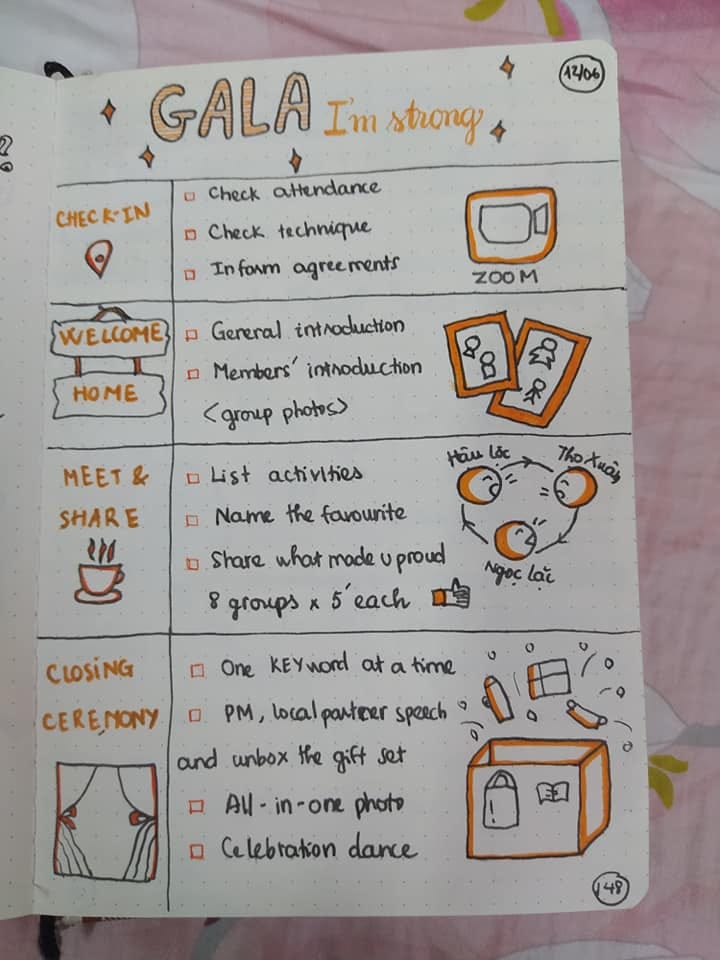 GALA I'm strong
12/06
CHECK-IN
Check attendance
Check technique
Inform agreements
ZOOM
WELCOME
HOME
General introduction
Members' introduction
<group photos>
MEET &
SHARE
List activities
Name the favourite
Share what made u proud
8 groups x 5' each
Hậu Lộc
Thọ Xuân
Ngọc Lặc
CLOSING
CEREMONY
One KEYword at a time
PM, local partner speech
and unbox the gift set
All-in-one photo
Celebration dance
148